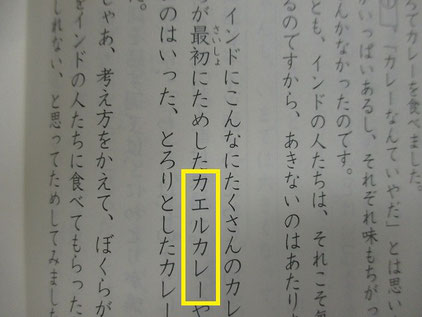 ろでカレーを食べました。
「カレーなんていやだ」とは思い
がいっぱいあるし、それぞれ味もちがっ
んかなかったのです。
とも、インドの人たちは、それこそ毎
るのですから、あきないのはあたりま
インドにこんなにたくさんのカレ
が最初にためしたカエルカレーや
さいしょ
のはいった、とろりとしたカレー
。
じゃあ、考え方をかえて、ぼくらが
をインドの人たちに食べてもらった
しれない、と思ってためしてみました